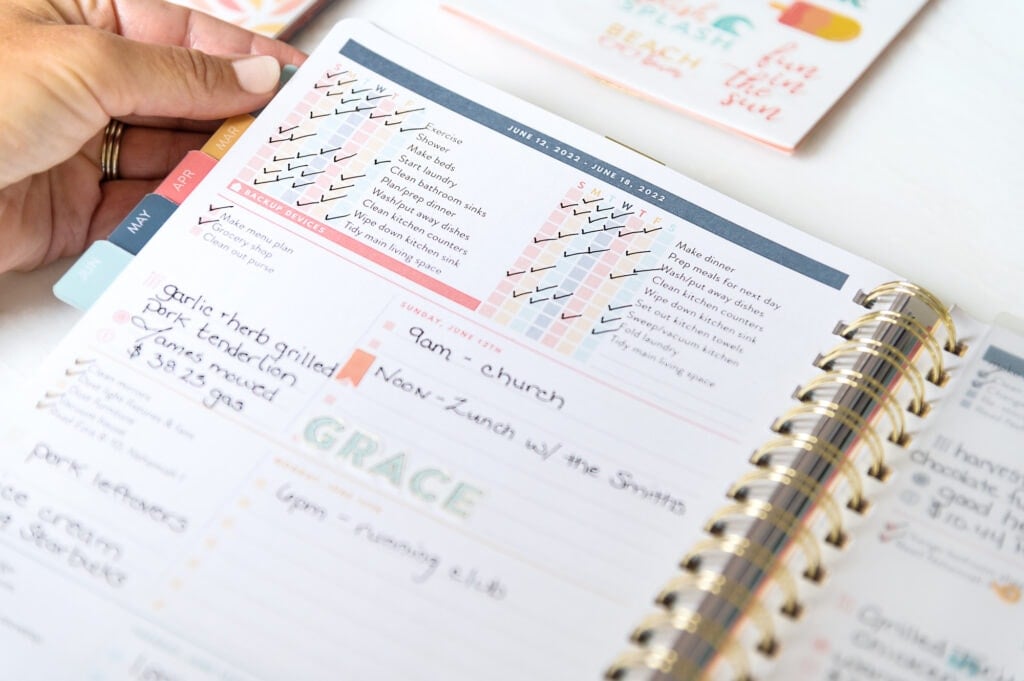 SPLASH
BEACH
fun
in
the
sun
MAR
APR
MAY
JUN
JUNE 12, 2022 - JUNE 18, 2022
S M T W T F S
Exercise
Shower
Make beds
Start laundry
Clean bathroom sinks
Plan/prep dinner
Wash/put away dishes
Clean kitchen counters
Wipe down kitchen sink
Tidy main living space
S M T W T F S
Make dinner
Prep meals for next day
Wash/put away dishes
Clean kitchen counters
Wipe down kitchen sink
Set out kitchen towels
Sweep/vacuum kitchen
Fold laundry
Tidy main living space
BACKUP DEVICES
Make menu plan
Grocery shop
Clean out purse
garlic + herb grilled
pork tenderlion
James mowed
$38.23 gas
SUNDAY, JUNE 12TH
9am - church
Noon - Lunch w/ the Smiths
GRACE
Clean mirrors
Dust light fixtures & fans
Dust furniture
Vacuum house
pork leftovers
6pm - running club
ice cream
@ Starbute
chocolate
good
$10.44
Grilled